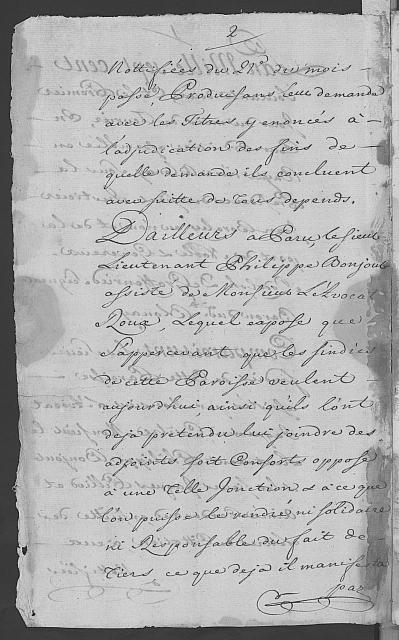 2
Nottifiées du 21e. du mois
passé, Produisans leur demande
avec les Titres y enoncés à
l'adjudication des fins de
quelle demande ils concluent
avec suitte de tous depends.
D'ailleurs a Paru, le sieur
Lieutenant Philippe Bonjour
assisté de Monsieur L'Avocat
Roux, Lequel expose que
S'appercevant que les sindics
de cette Paroisse veulent
aujourdhui ainsi qu'ils l'ont
deja prétendu lui joindre des
adjoints soit Consorts oppose
à une Telle Jonction & à ce que
l'on puisse le rendre ni solidaire
ni Responsable du fait de
Tiers ce que deja il manifesta
par